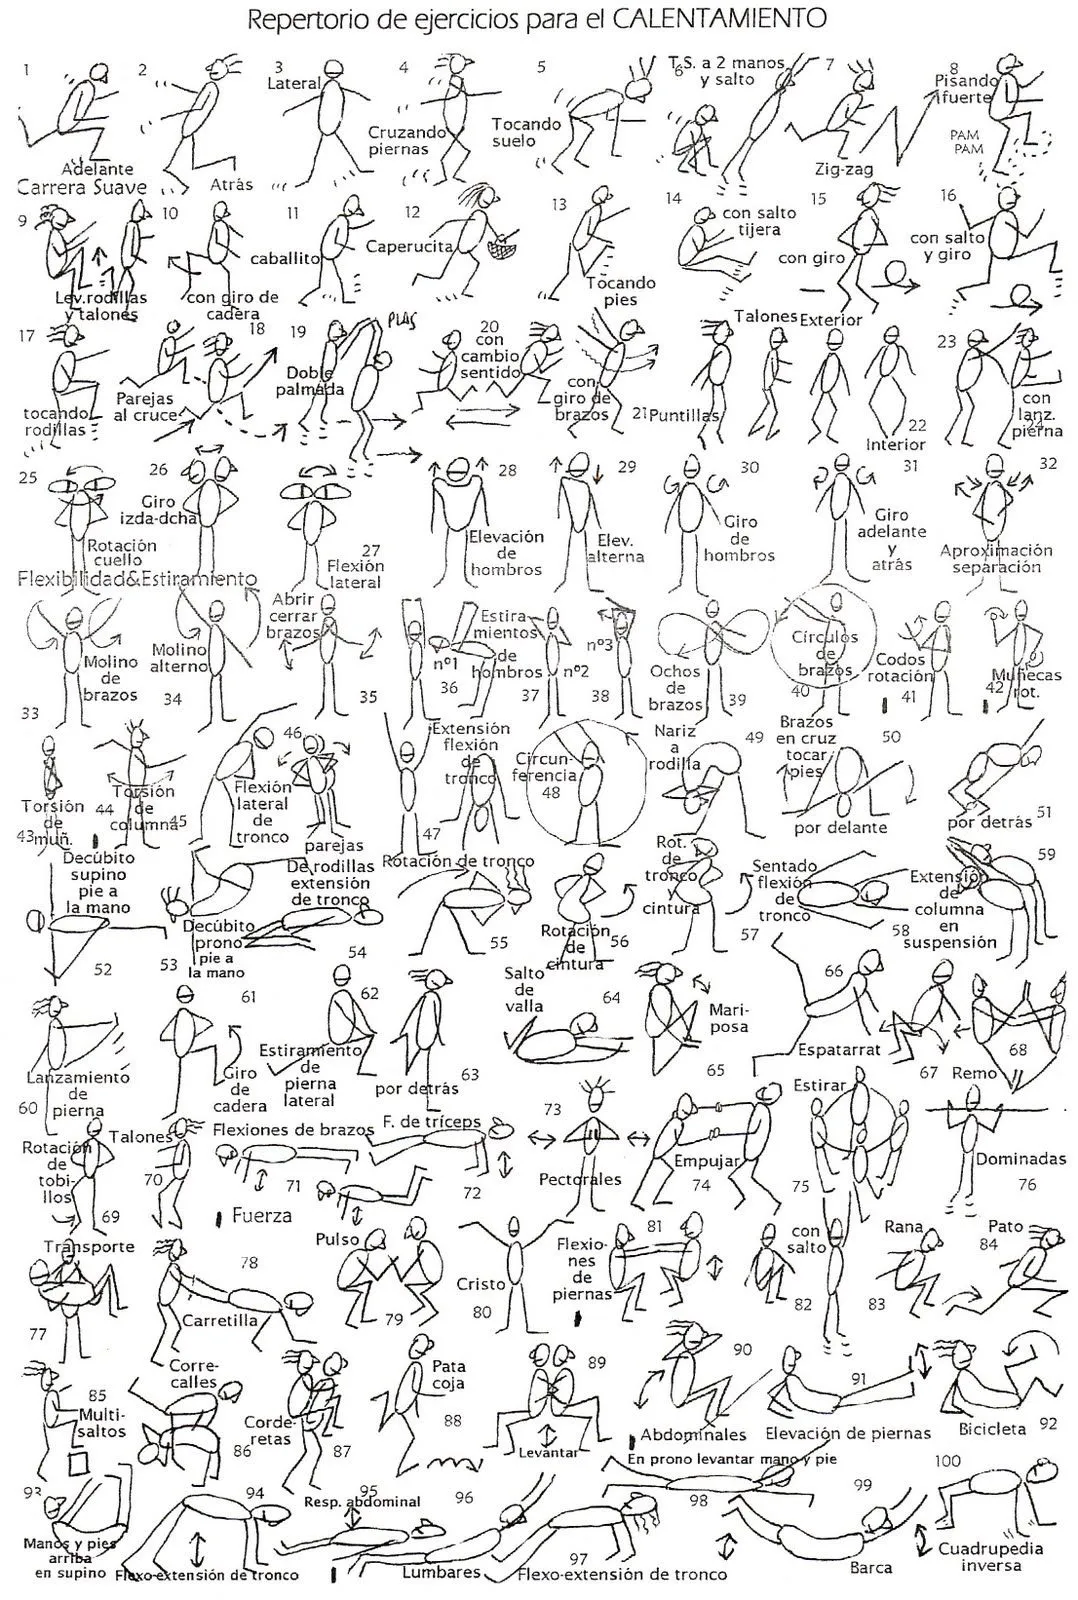 Repertorio de ejercicios para el CALENTAMIENTO
1
2
3
Lateral
4
5
6
T.S. a 2 manos
y salto
7
8
Pisando
fuerte
Cruzando
piernas
Tocando
suelo
PAM
PAM
Adelante
Carrera Suave
Atrás
Zig-zag
9
10
11
caballito
12
Caperucita
13
14
con salto
tijera
15
con giro
16
con salto
y giro
Lev.rodillas
y talones
con giro de
cadera
Tocando
pies
17
tocando
rodillas
18
Parejas
al cruce
19
Doble
palmada
PLAS
20
con
cambio
sentido
con
giro de
brazos
21
Puntillas
Talones
Exterior
22
Interior
23
con
lanz.
pierna
24
25
Rotación
cuello
26
Giro
izda-dcha
27
Flexión
lateral
28
Elevación
de
hombros
29
Elev.
alterna
30
Giro
de
hombros
31
Giro
adelante
y
atrás
32
Aproximación
separación
Flexibilidad&Estiramiento
33
Molino
de
brazos
34
Molino
alterno
Abrir
cerrar
brazos
35
Estira-
mientos
de
hombros
nº1
36
37
nº2
nº3
38
Ochos
de
brazos
39
Círculos
de
brazos
40
Codos
rotación
41
Muñecas
rot.
42
Torsión
de
muñ.
43
44
Torsión
de
columna
45
Flexión
lateral
de
tronco
46
parejas
Extensión
flexión
de
tronco
47
Circun-
ferencia
48
Nariz
a
rodilla
49
Brazos
en cruz
tocar
pies
por delante
50
por detrás
51
Decúbito
supino
pie a
la mano
52
53
Decúbito
prono
pie a
la mano
De rodillas
extensión
de tronco
54
Rotación de tronco
55
Rotación
de
cintura
56
Rot.
de
tronco
y
cintura
57
Sentado
flexión
de
tronco
58
Extensión
de
columna
en
suspensión
59
Lanzamiento
de
pierna
60
61
Giro
de
cadera
62
Estiramiento
de
pierna
lateral
por detrás
63
Salto
de
valla
64
Mari-
posa
65
66
Espatarrat
67
Remo
68
Rotación
de
tobi-
llos
69
Talones
70
Flexiones de brazos
71
F. de tríceps
72
73
Pectorales
Empujar
74
Estirar
75
Dominadas
76
Fuerza
Transporte
77
78
Carretilla
Pulso
79
Cristo
80
Flexio-
nes
de
piernas
81
con
salto
82
Rana
83
Pato
84
85
Multi-
saltos
Corre-
calles
86
Corde-
retas
87
Pata
coja
88
89
Levantar
90
Abdominales
91
Elevación de piernas
Bicicleta
92
93
Manos y pies
arriba
en supino
94
Flexo-extensión de tronco
95
Resp. abdominal
96
Lumbares
97
Flexo-extensión de tronco
En prono levantar mano y pie
98
99
Barca
100
Cuadrupedia
inversa